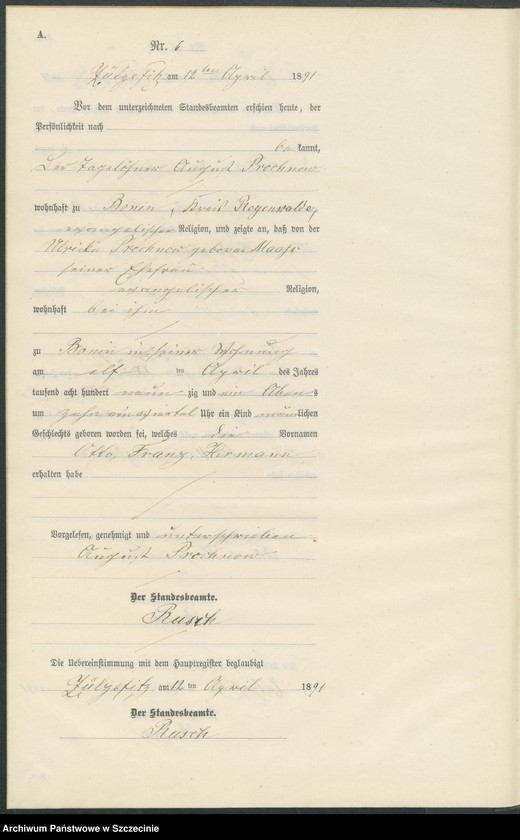 A.
Nr. 6
Zülzefitz am 12 ten April 1891
Vor dem unterzeichneten Standesbeamten erschien heute, der
Persönlichkeit nach
be kannt,
Der Tagelöhner August Prochnow
wohnhaft zu Bonin, Kreis Regenwalde,
evangelischer Religion, und zeigte an, daß von der
Ulrike Prochnow geborne Maaß
seiner Ehefrau
evangelischer Religion,
wohnhaft bei ihm
zu Bonin in seiner Wohnung
am elf ten April des Jahres
tausend acht hundert neun zig und ein Abends
um zehn ein viertel Uhr ein Kind männlichen
Geschlechts geboren worden sei, welches die Vornamen
Otto, Franz, Hermann
erhalten habe
Vorgelesen, genehmigt und unterschrieben.
August Prochnow
Der Standesbeamte.
Rusch
Die Uebereinstimmung mit dem Hauptregister beglaubigt
Zülzefitz am 12 ten April 1891
Der Standesbeamte.
Rusch
Archiwum Państwowe w Szczecinie